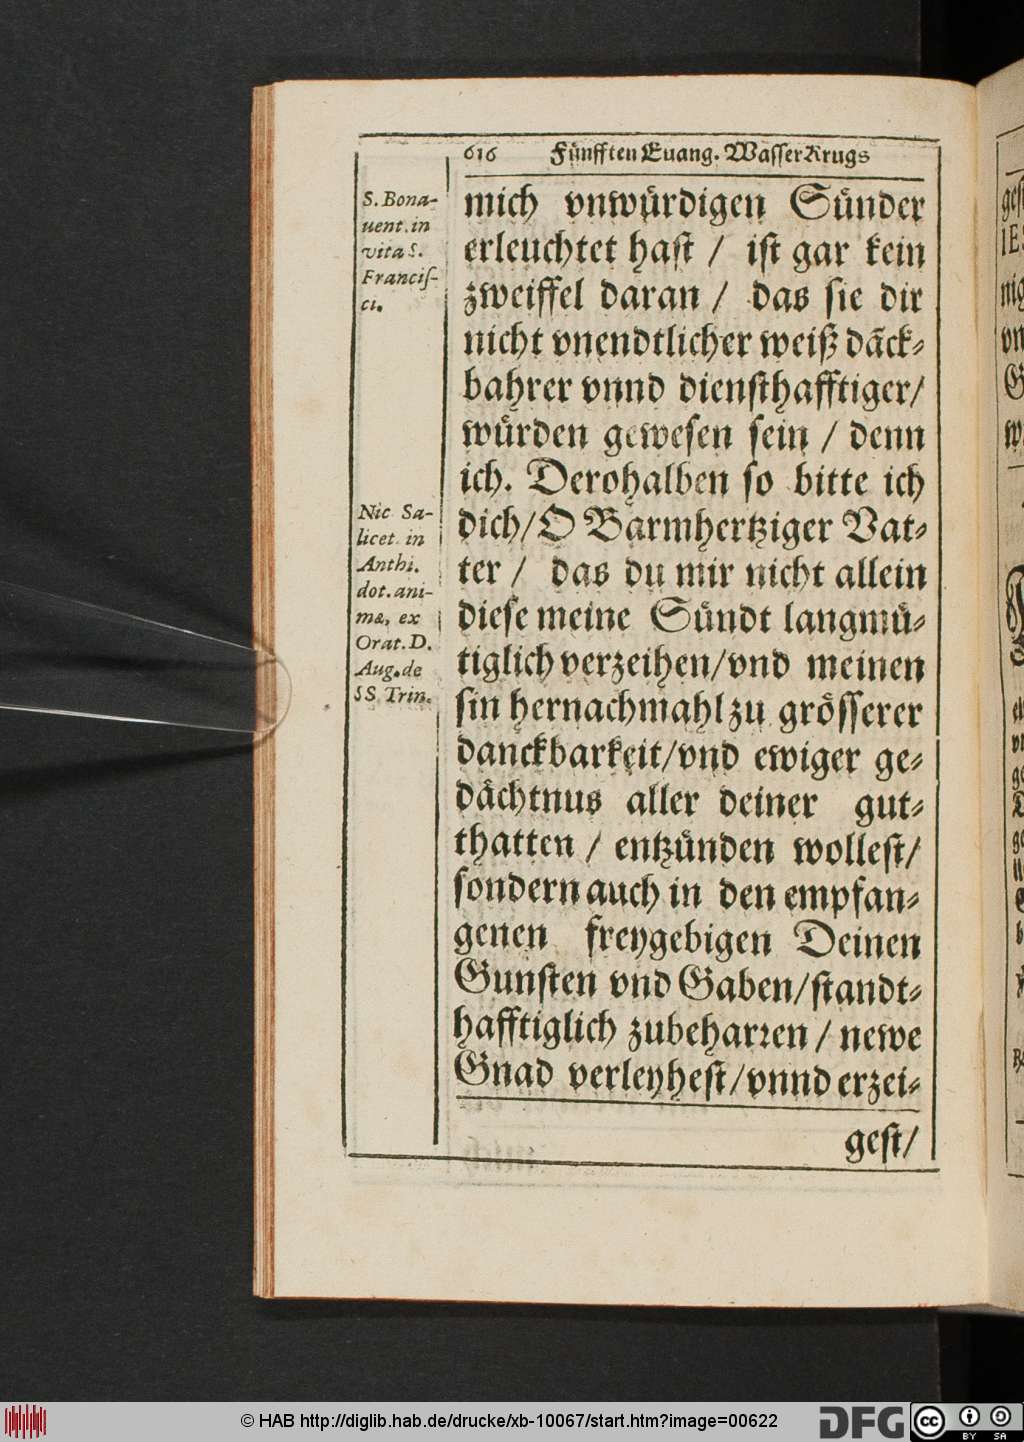 616 Fünfften Euang. Wasser Krugs
S. Bona-
uent. in
vita S.
Francis-
ci.
mich vnwürdigen Sünder
erleuchtet hast / ist gar kein
zweiffel daran / das sie dir
nicht vnendtlicher weiß dāck-
bahrer vnnd diensthafftiger/
würden gewesen sein / denn
ich. Derohalben so bitte ich
dich/ O Barmhertziger Vat-
ter / das du mir nicht allein
diese meine Sündt langmü-
tiglich verzeihen/vnd meinen
sin hernachmahl zu grösserer
danckbarkeit/vnd ewiger ge-
dächtnus aller deiner gut-
thatten / entzünden wollest/
sondern auch in den empfan-
genen freygebigen Deinen
Gunsten vnd Gaben/standt-
hafftiglich zubeharren / newe
Gnad verleyhest/vnnd erzei-
gest/
Nic Sa-
licet. in
Anthi.
dot. ani-
mæ, ex
Orat. D.
Aug. de
SS. Trin.
© HAB http://diglib.hab.de/drucke/xb-10067/start.htm?image=00622
DFG
cc BY SA